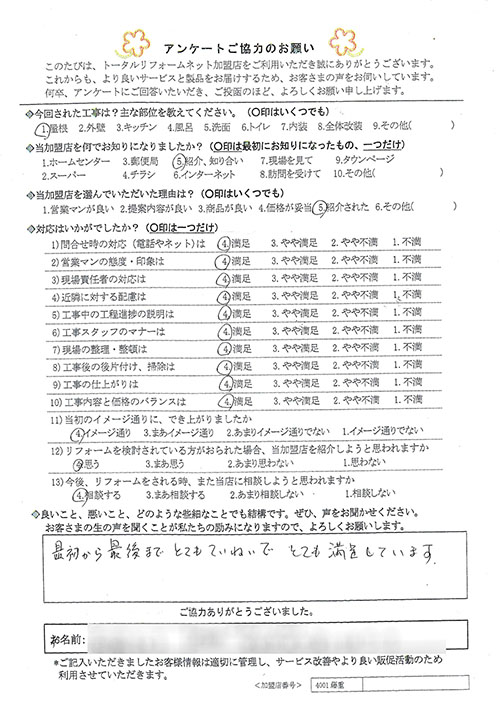 アンケートご協力のお願い
このたびは、トータルリフォームネット加盟店をご利用いただき誠にありがとうございます。
これからも、より良いサービスと製品をお届けするため、お客さまの声をお伺いしています。
何卒、アンケートにご回答いただき、ご投函のほど、よろしくお願い申し上げます。
◆今回された工事は？主な部位を教えてください。（〇印はいくつでも）
1.屋根 2.外壁 3.キッチン 4.風呂 5.洗面 6.トイレ 7.内装 8.全体改装 9.その他( )
◆当加盟店を何でお知りになりましたか？（〇印は最初にお知りになったもの、一つだけ）
1.ホームセンター 3.郵便局 5.紹介、知り合い 7.現場を見て 9.タウンページ
2.スーパー 4.チラシ 6.インターネット 8.訪問を受けて 10.その他( )
◆当加盟店を選んでいただいた理由は？（〇印はいくつでも）
1.営業マンが良い 2.提案内容が良い 3.商品が良い 4.価格が妥当 5.紹介された 6.その他( )
◆対応はいかがでしたか？（〇印は一つだけ）
1)問合せ時の対応（電話やネット）は 4.満足 3.やや満足 2.やや不満 1.不満
2)営業マンの態度・印象は 4.満足 3.やや満足 2.やや不満 1.不満
3)現場責任者の対応は 4.満足 3.やや満足 2.やや不満 1.不満
4)近隣に対する配慮は 4.満足 3.やや満足 2.やや不満 1.不満
5)工事中の工程進捗の説明は 4.満足 3.やや満足 2.やや不満 1.不満
6)工事スタッフのマナーは 4.満足 3.やや満足 2.やや不満 1.不満
7)現場の整理・整頓は 4.満足 3.やや満足 2.やや不満 1.不満
8)工事後の後片付け、掃除は 4.満足 3.やや満足 2.やや不満 1.不満
9)工事の仕上がりは 4.満足 3.やや満足 2.やや不満 1.不満
10)工事内容と価格のバランスは 4.満足 3.やや満足 2.やや不満 1.不満
11)当初のイメージ通りに、でき上がりましたか
4.イメージ通り 3.まあイメージ通り 2.あまりイメージ通りでない 1.イメージ通りでない
12)リフォームを検討されている方がおられた場合、当加盟店を紹介しようと思われますか
4.思う 3.まあ思う 2.あまり思わない 1.思わない
13)今後、リフォームをされる時、また当店に相談しようと思われますか
4.相談する 3.まあ相談する 2.あまり相談しない 1.相談しない
◆良いこと、悪いこと、どのような些細なことでも結構です。ぜひ、声をお聞かせください。
お客さまの生の声を聞くことが私たちの励みになりますので、よろしくお願いします。
最初から最後まで とてもていねいで とても満足しています.
ご協力ありがとうございました。
お名前:
*ご記入いただきましたお客様情報は適切に管理し、サービス改善やより良い販促活動のため
利用させていただきます。
<加盟店番号> 4001藤重